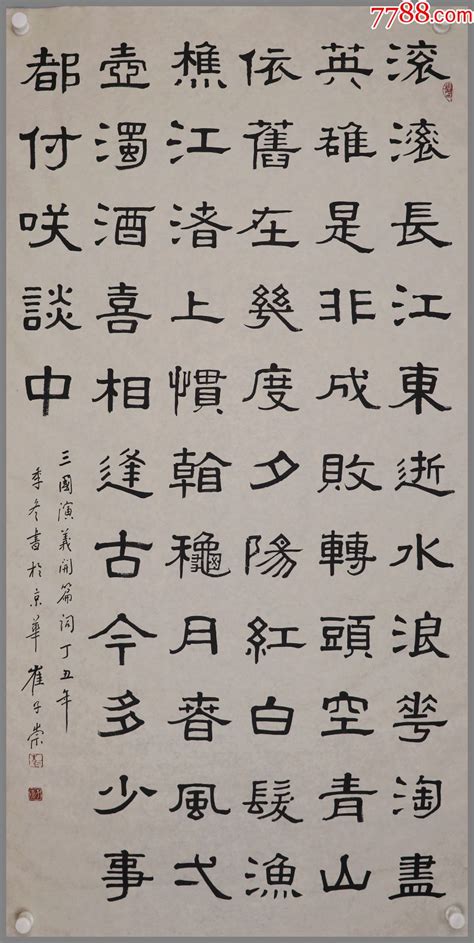 7788.com
滚滚長江東逝水浪花淘盡
英雄是非成敗轉頭空青山
依舊在幾度夕陽紅白髮漁
樵江渚上慣看龝月春風弌
壺濁酒喜相逢古今多少事
都付咲談中
三國演義開篇詞丁丑年
季冬書於京華崔子崇